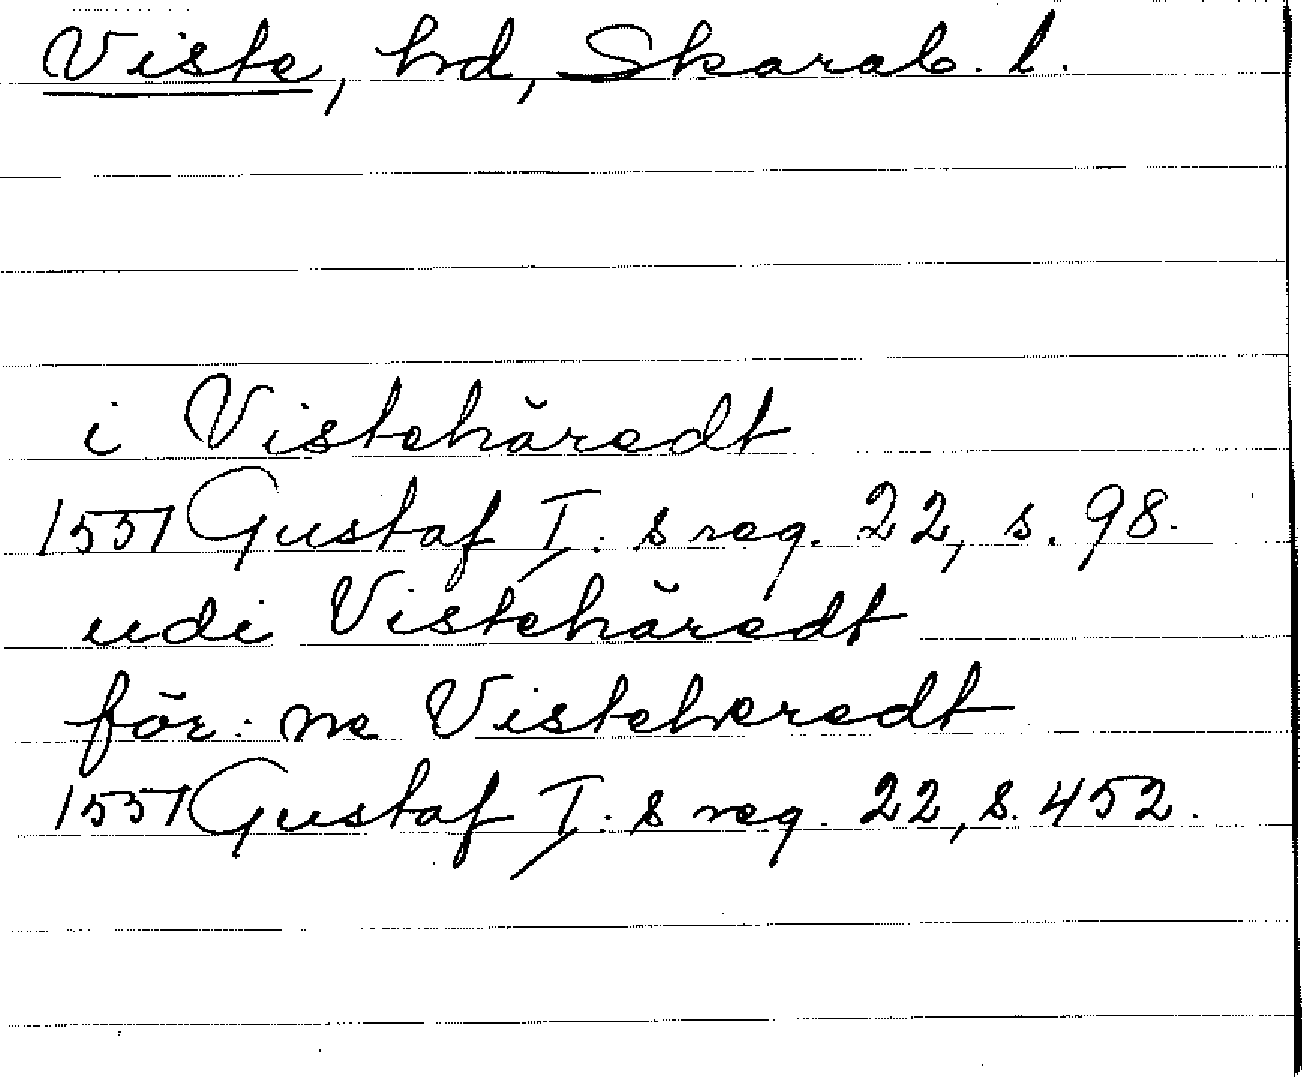 Viste, hd, Skarab. l.
i Vistehäredt
1551 Gustaf I. s reg. 22, s. 98.
udi Vistehäredt
för: ne Visteheredt
1551 Gustaf I. s reg. 22, s. 452.